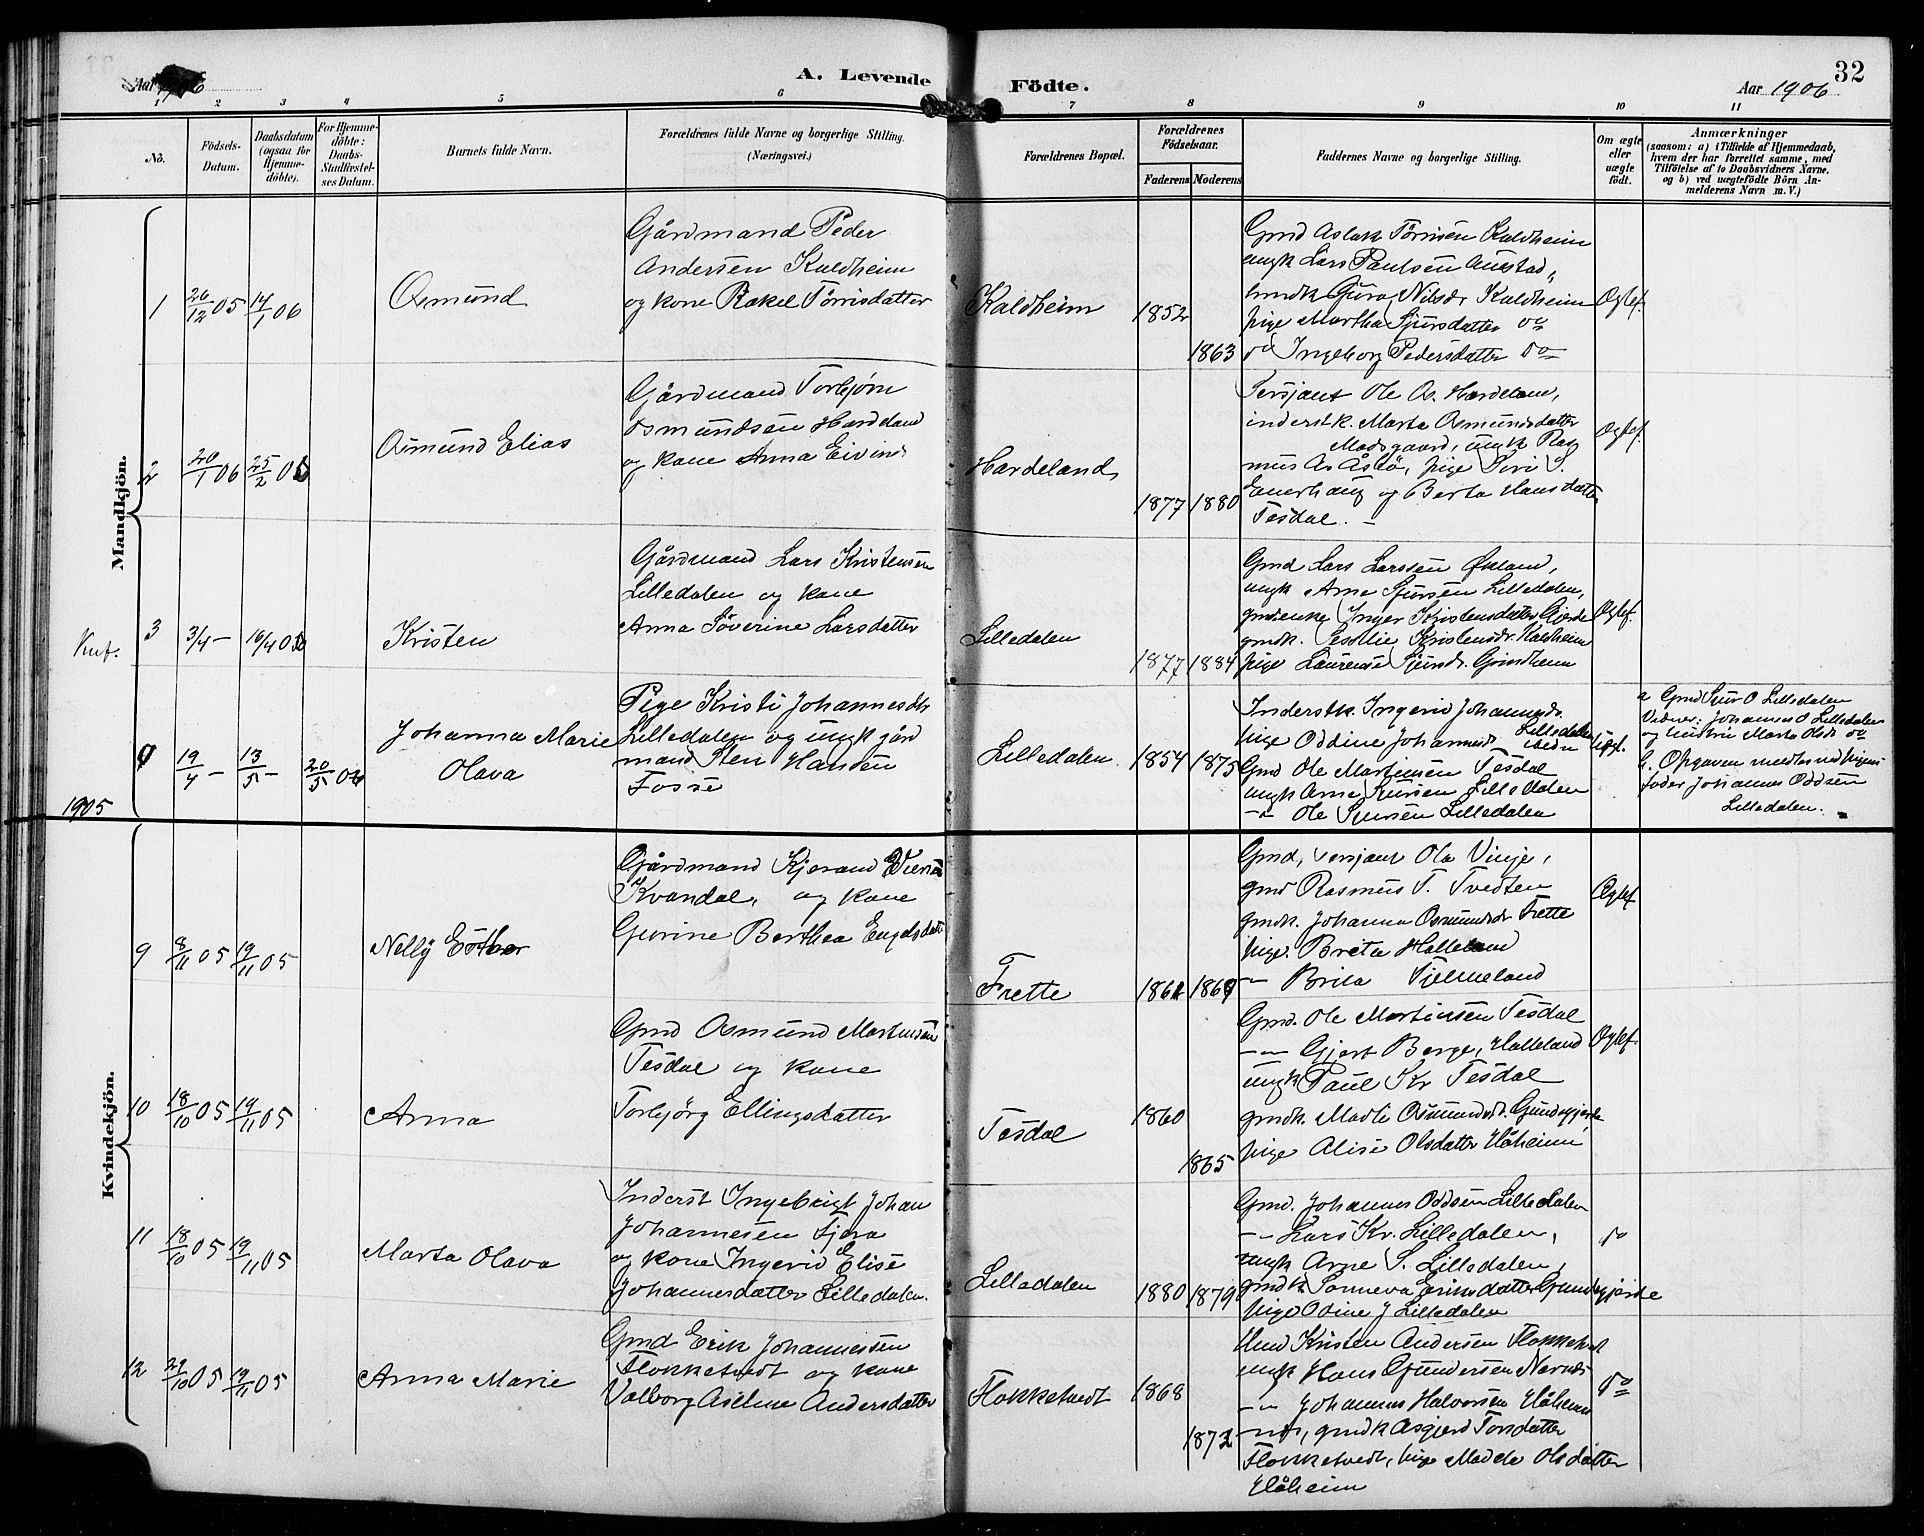 Aar 1906
A. Levende
Födte.
Aar 1906
32
1 2 3 4 5 6 7 8 9 10 11
No.
Födsels-Datum.
Daabsdatum (ogsaa for Hjemme-döbte).
For Hjemme-döbte: Daabs-Stadfæstel-ses Datum.
Barnets fulde Navn.
Forældrenes fulde Navne og borgerlige Stilling. (Næringsvei.)
Forældrenes Bopæl.
Forældrenes Födselsaar.
Faderens Moderens
Faddernes Navne og borgerlige Stilling.
Om ægte eller uægte født.
Anmærkninger
(saasom: a) i Tilfælde af Hjemmedaab,
hvem der har forrettet samme, med
Tilföielse af to Daabsvidners Navne,
og b) ved uægtefödte Börn An-
melderens Navn m. V.)
Mandkjön.
1 26/12 05 14/1 06
Osmund
Gårdmand Peder
Andersen Kaldheim
og kone Rakel Törrisdatter
Kaldheim
1852
1863
Gmd Aslak Törrisen Kaldheim
ungk Lars Paulsen Austad,
gmdk Guro Nilsdr Kaldheim
pige Martha Sjursdatter do
do Ingeborg Pedersdatter do
Ægtef.
2 20/1 06 25/2 06
Osmund Elias
Gårdmand Torbjørn
Osmundsen Hardeland
og kone Anna Eivind
Hardeland
1877 1880
Sersjant Ole O. Hardeland,
inderstk. Marta Osmundsdatter
Madsgaard, ungk Ras
mus As Åstø, pige Siri S.
og Berta Hansdatter
Tesdal.
Ægtef.
Knf.
3 3/4 - 16/4 06
Kristen
Gårdmand Lars Kristensen
Lilledalen og kone
Anna Söverine Larsdatter
Lilledalen
1877 1884
Gmd Lars Larssen Økland,
ungk Arne Sjursen Lilledalen,
gmdenke Inger Kristensdatter Gjerde
gmdk. Kristensdr. Kaldheim
pige Laurense Sjursdr. Grindheim
Ægtef.
19/4 - 13/5 - 20/5 06
Johanna Marie
Olava
Pige Kristi Johannesdtr
Lilledalen og ungk gård
mand Sten Hansen
Fosse
Lilledalen
1854 1875
Inderstk. Ingerid Johannesdr. Lilledalen
pige Oddine Johannesdr ibidn
Gmd Ole Martinsen Tesdal
ungk Arne Sjursen Lilledalen
-"- Ole Sjursen Lilledalen
Uægt.
a Gmd Sjur O Lilledalen
Vidner: Johannes O Lilledalen
og hustru Marta Olsdr do
b. Opgaven meddelt ved pigens
fader Johannes Oddsen
Lilledalen.
1905
Kvindekjön.
9 8/11 05 19/11 05
Nelly Esther
Gårdmand Kjerand
Kvandal, og kone
Gurine Berthea Engelsdatt
Frette
Gmd, sersjant Ola Vinje,
gmd Rasmus T. Tvedten
gmdk. Johanna Osmundsdr Frette
pige. Brita Halleland
-"- Brita Tjelmeland
Ægtef
10 18/10 05 19/11 05
Anna
Gmd Osmund Martinsen
Tesdal og kone
Torbjörg Ellingsdatter
Tesdal
1860
1865
Gmd. Ole Martinsen Tesdal
-"- Gjert Berge, Halleland
ungk Paul Kr Tesdal
gmdk. Madli Osmundsdr. Gundegjerde
pige Alise Olsdatter Håheim
Ægtef.
11 18/10 05 19/11 05
Marta Olava
Inderst Ingebrigt Johan
Johannesen Fjæra
og kone Ingerid Elise
Johannesdatter Lilledalen.
Lilledalen
1880 1879
Gmd. Johannes Oddsen Lilledalen
-"- Lars Kr. Lilledalen,
ungk Arne S. Lilledalen,
gmdk Sonneva Eriksdatter Gundegjerde
pige Odine J Lilledalen
do
12 29/10 05 19/11 05
Anna Marie
Gmd Erik Johannessen
Flokketvedt og kone
Valborg Aseline Andersdatter
Flokketvedt
1868
1872
Gmd Kristen Andersen Flokketvedt
ungk Hans Gundersen
-"- Johannes Halvorsen Håheim
gmdk Asgjerd Torsdatter
Flokketvedt, pige Madde Olsdatter
Håheim
do